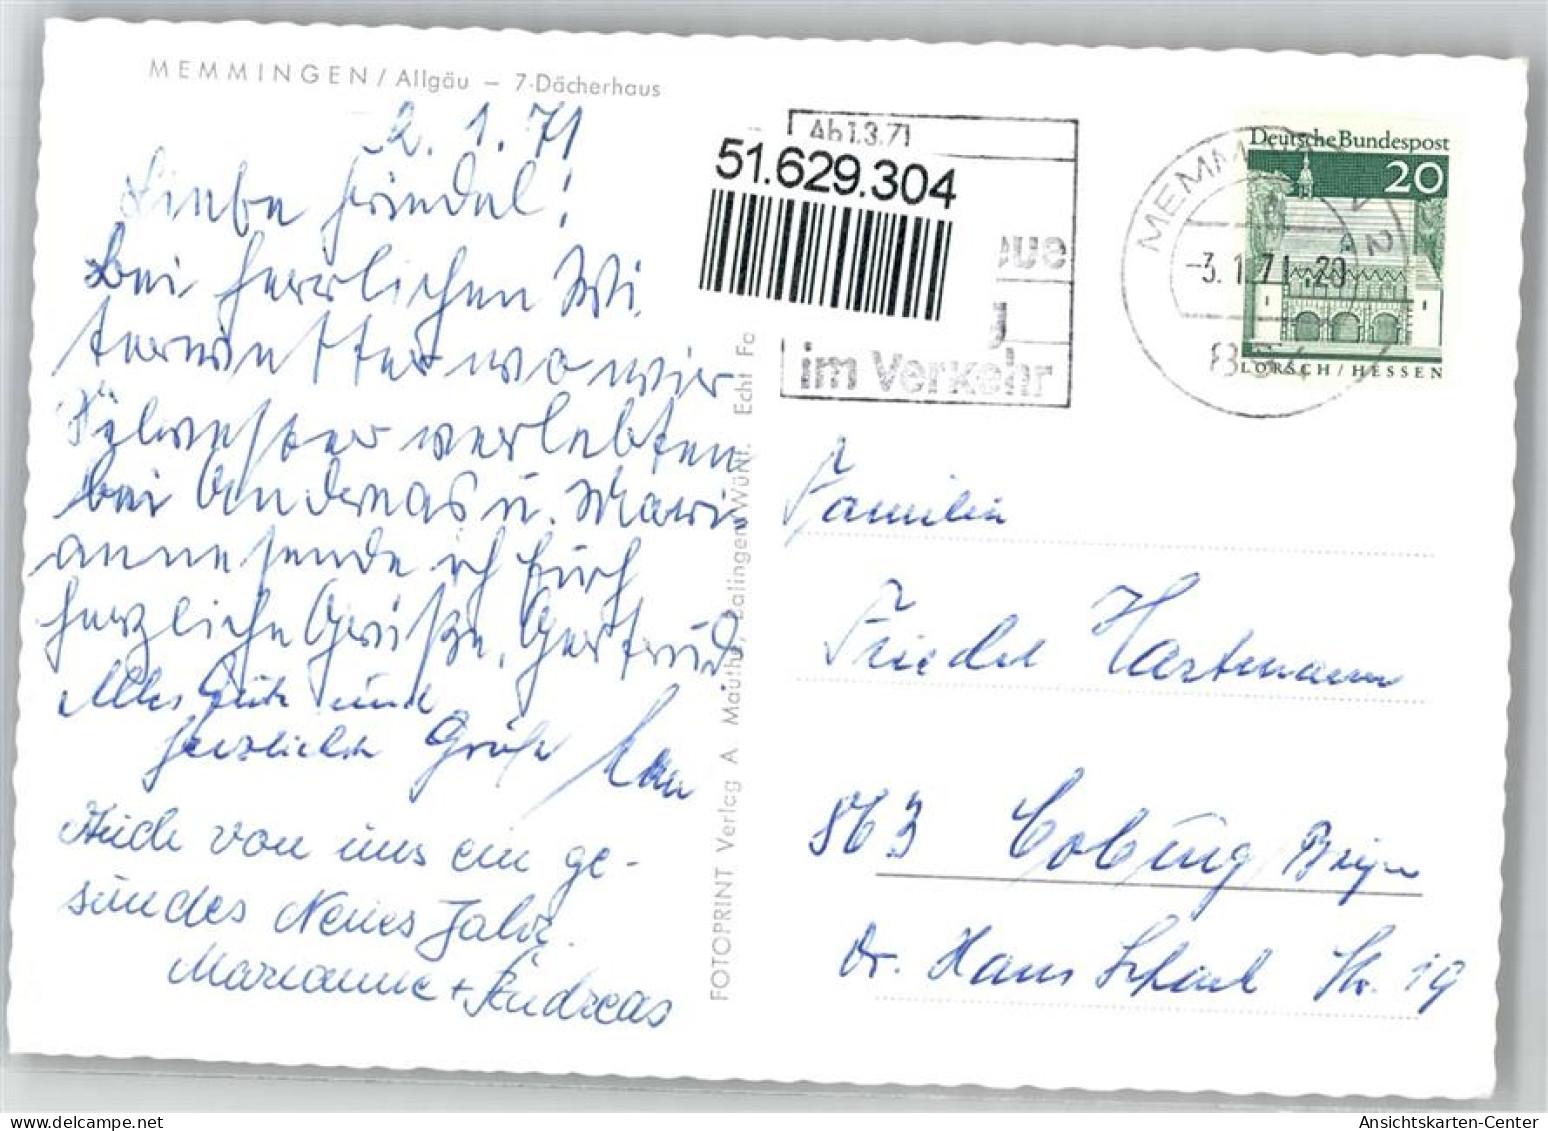 MEMMINGEN / Allgäu – 7-Dächerhaus
2. 1. 71
Liebe Friedel!
Bei herrlichen Wi
terwetter wo wir
Sylwester verlebten
bei Andreas u. Mari
anne sende ich Euch
herzliche Grüße, Gertrud
Alles Gute und
herzliche Grüße
Auch von uns ein ge-
sundes Neues Jahr.
Marianne + Andreas
FOTOPRINT Verlag A Mauthe, Balingen/Württ. Echt Fo
Ab 1.3.71
51.629.304
eue
g
im Verkehr
MEMMI 2
-3. 1. 71.-20
Deutsche Bundespost
20
LORSCH / HESSEN
Familie
Friedel Hartmann
863 Coburg
Dr. Hans Schack Str. 19
Ansichtskarten-Center